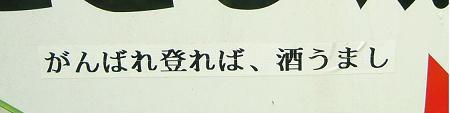 がんばれ登れば、酒うまし